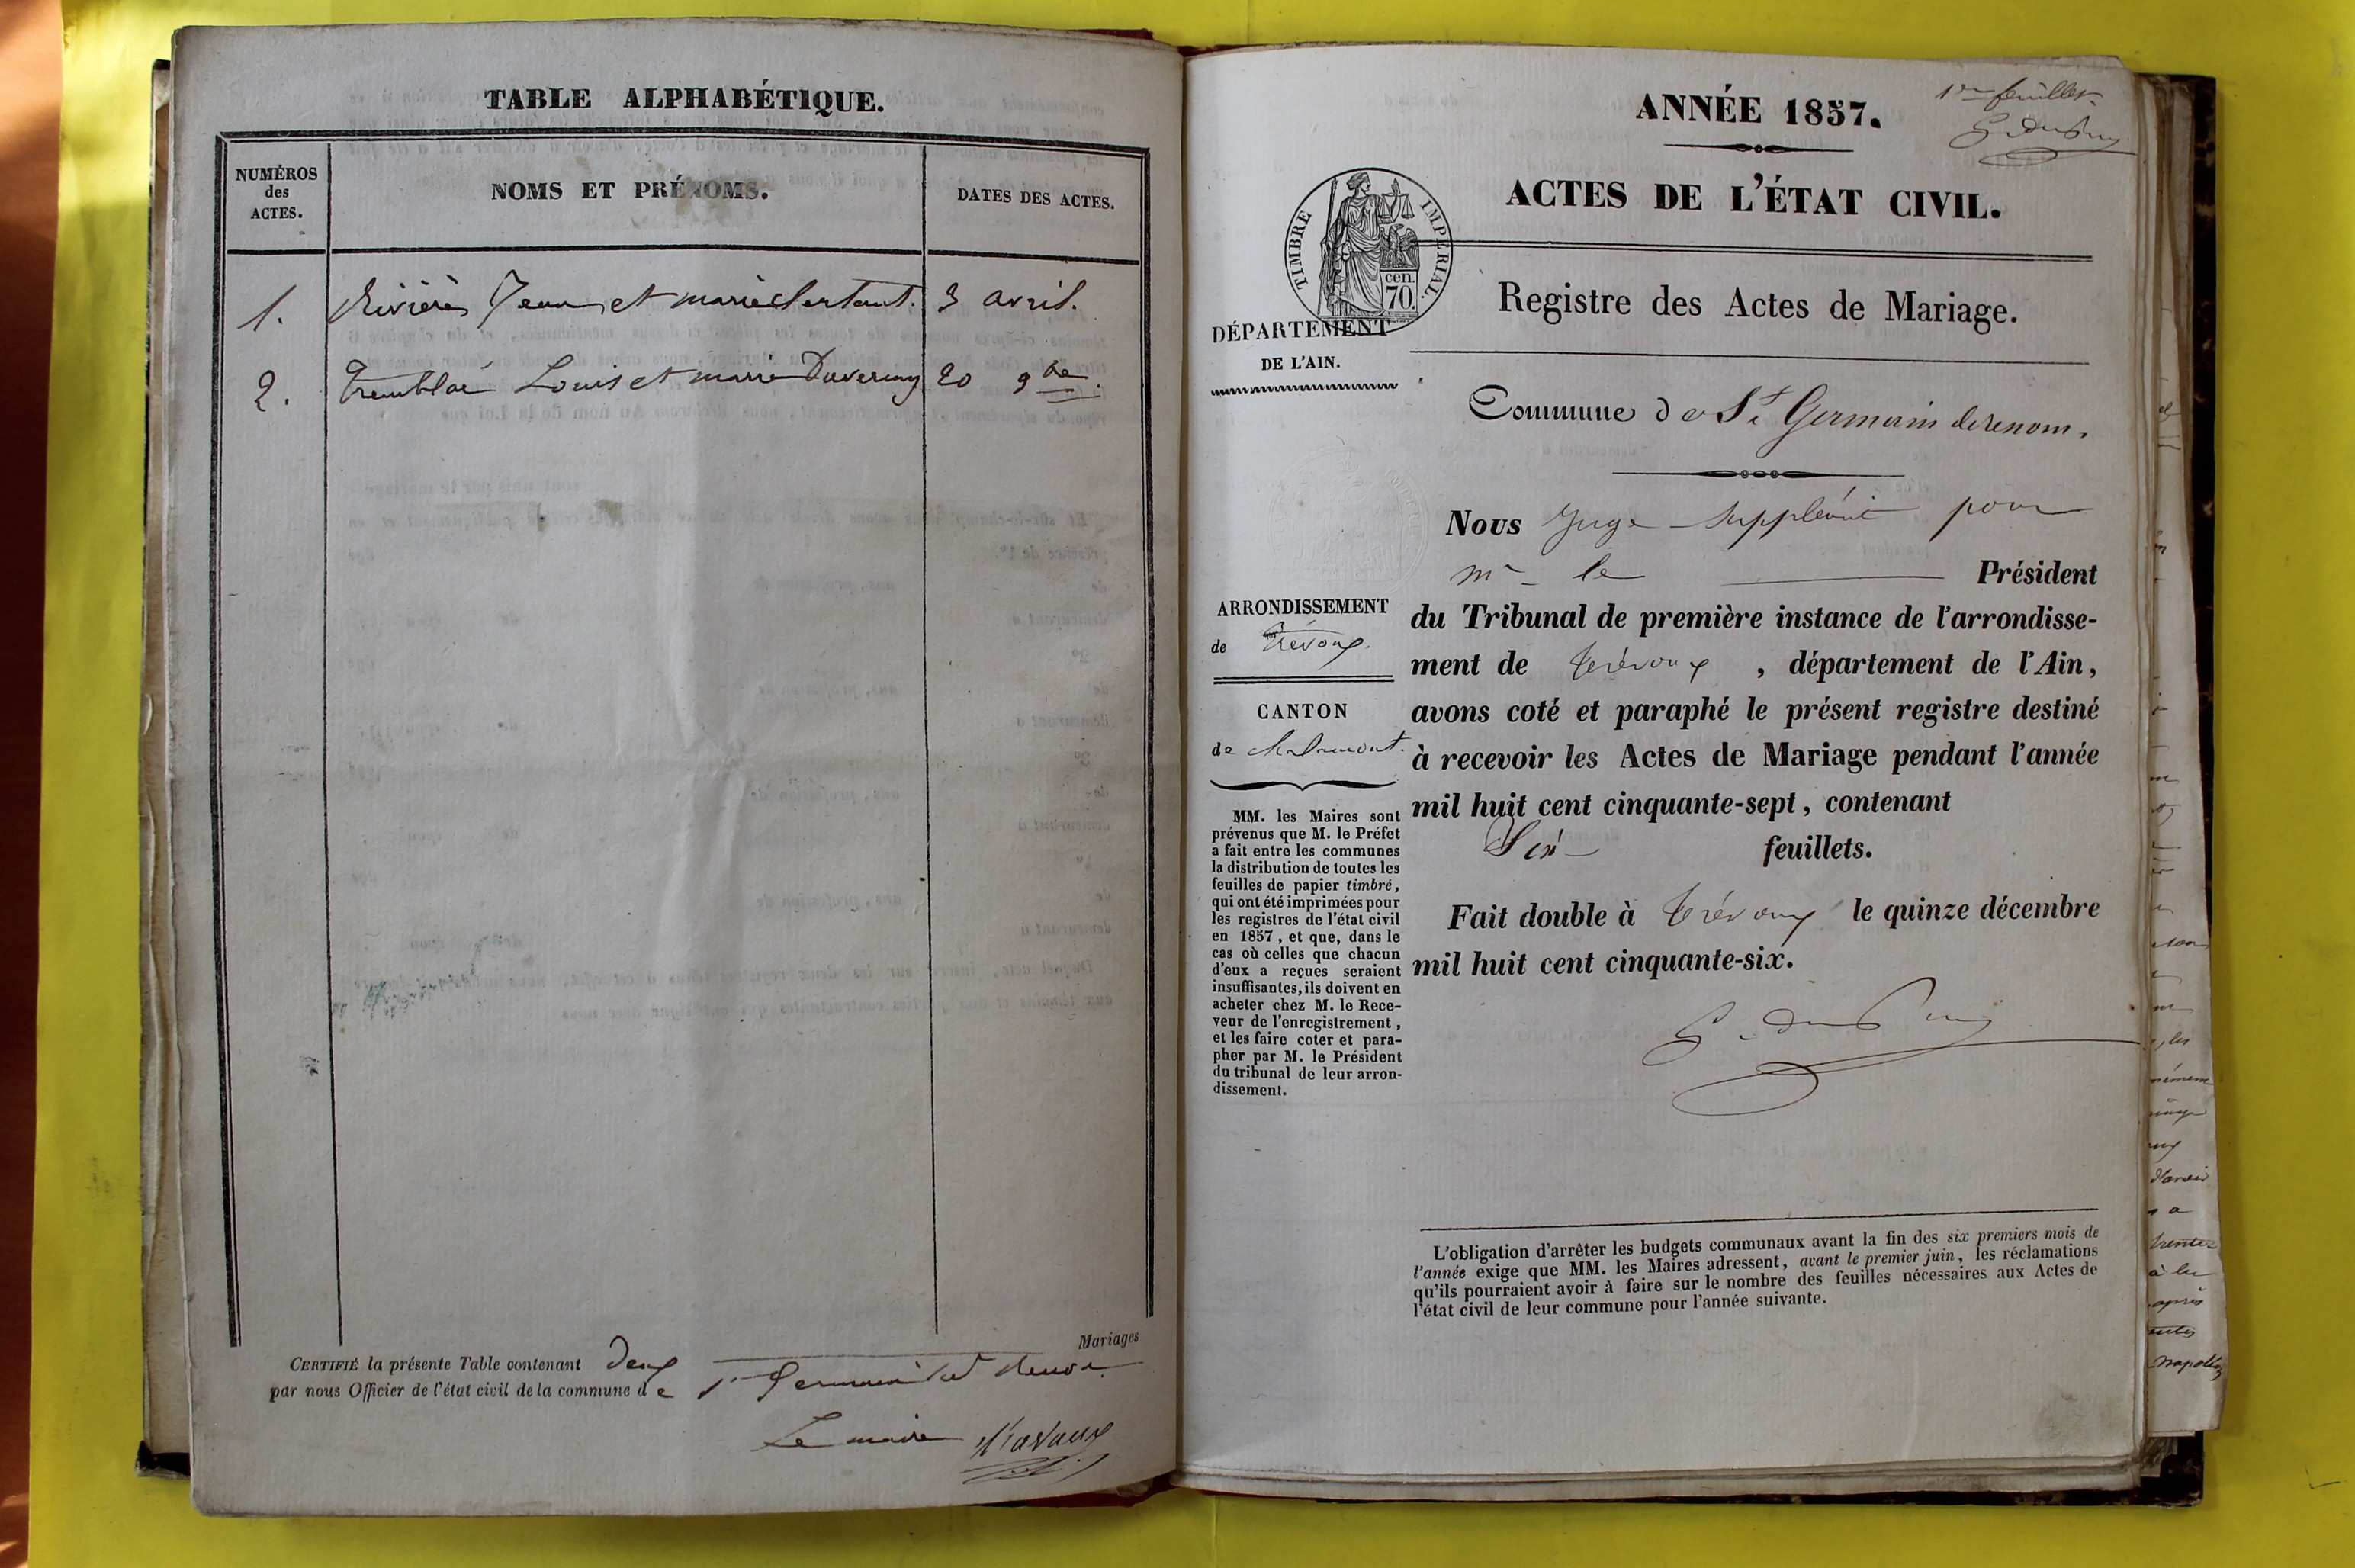 TABLE ALPHABÉTIQUE.
NUMÉROS
des
ACTES.
NOMS ET PRÉNOMS.
DATES DES ACTES.
1. Rivière Jean et marie 3 avril.
2. Louis et marie Duvernay 20 9bre.
Mariages
CERTIFIÉ la présente Table contenant deux
par nous Officier de l'état civil de la commune de St Germain
Le maire
1er feuillet
ANNÉE 1857.
ACTES DE L'ÉTAT CIVIL.
TIMBRE IMPÉRIAL.
cen.
70.
Registre des Actes de Mariage.
DÉPARTEMENT
DE L'AIN.
Commune de St Germain derenom.
Nous Juge Suppléant pour
mr le Président
ARRONDISSEMENT
de Trévoux.
CANTON
de Chalamont.
MM. les Maires sont
prévenus que M. le Préfet
a fait entre les communes
la distribution de toutes les
feuilles de papier timbré,
qui ont été imprimées pour
les registres de l'état civil
en 1857, et que, dans le
cas où celles que chacun
d'eux a reçues seraient
insuffisantes, ils doivent en
acheter chez M. le Rece-
veur de l'enregistrement,
et les faire coter et para-
pher par M. le Président
du tribunal de leur arron-
dissement.
du Tribunal de première instance de l'arrondisse-
ment de Trévoux, département de l'Ain,
avons coté et paraphé le présent registre destiné
à recevoir les Actes de Mariage pendant l'année
mil huit cent cinquante-sept, contenant
Six feuillets.
Fait double à Trévoux le quinze décembre
mil huit cent cinquante-six.
L'obligation d'arrêter les budgets communaux avant la fin des six premiers mois de
l'année exige que MM. les Maires adressent, avant le premier juin, les réclamations
qu'ils pourraient avoir à faire sur le nombre des feuilles nécessaires aux Actes de
l'état civil de leur commune pour l'année suivante.